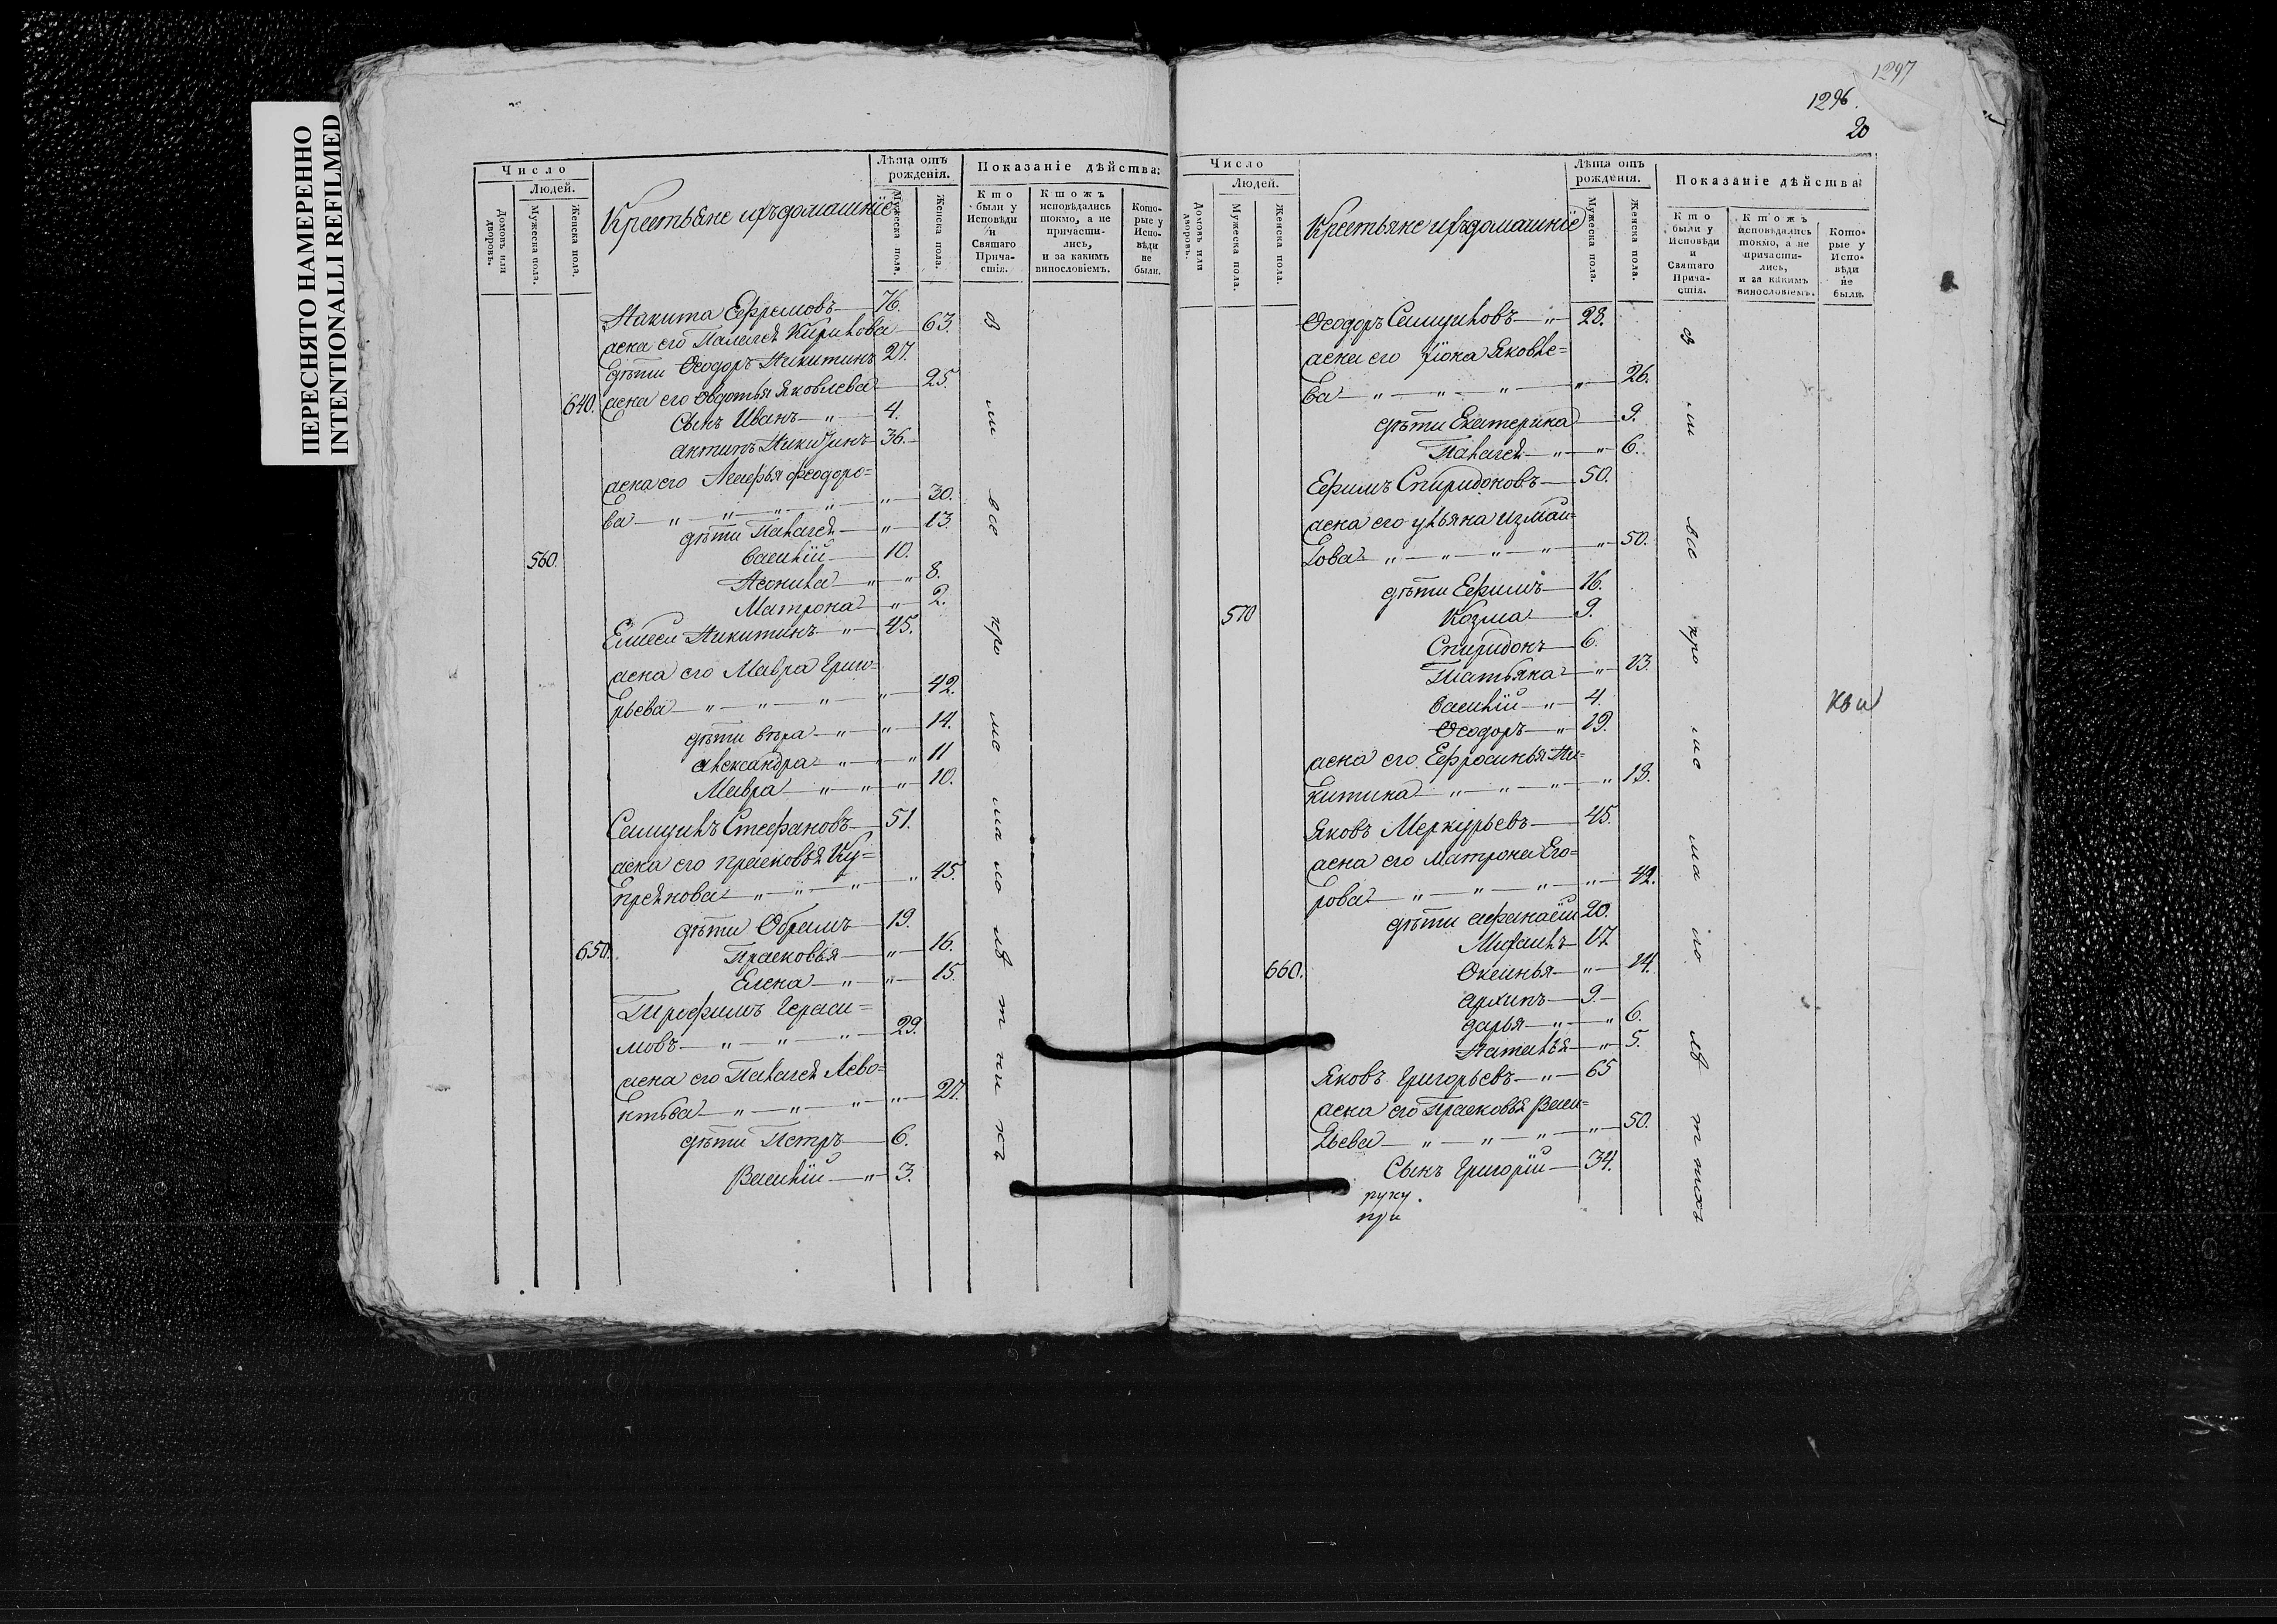 ПЕРЕСНЯТО НАМЕРЕННО
INTENTIONALLI REFILMED
Число
Людей.
Домовъ или дворовъ.
Мужеска пола.
Женска пола.
Крестьяне ихъ домашніе
Лѣта отъ рожденія.
Мужеска пола.
Женска пола.
Показаніе дѣйства:
Кто были у Исповѣди и Святаго Причастія.
Ктожъ исповѣдались токмо, а не причастились, и за какимъ винословіемъ.
Которые у Исповѣди не были.
Никита Ефремовъ 76.
жена его Палагея Кирилова 63.
дѣти Ѳеодоръ Никитинъ 27.
640. жена его Овдотья Яковлева 25.
Сынъ Иванъ 4.
Антипъ Никитинъ 36.
жена его Агафья Феодоро=
ва 30.
дѣти Палагея 13.
560. Василій 10.
Неонила 8.
Матрона 2.
Елисей Никитинъ 45.
жена его Мавра Григо=
рьева 42.
дѣти Вѣра 14.
Александра 11
Мавра 10.
Самуилъ Стефановъ 51.
жена его Прасковья Ку=
преянова 45.
дѣти Обрамъ 19.
650. Прасковья 16.
Елена 15.
Трофимъ Гераси=
мовъ 29.
жена его Палагея Лево=
нтьва 27.
дѣти Петръ 6.
Василій 3.
1297
1296.
20
Число
Людей.
Домовъ или дворовъ.
Мужеска пола.
Женска пола.
Крестьяне ихъ домашніе
Лѣта отъ рожденія.
Мужеска пола.
Женска пола.
Показаніе дѣйства:
Кто были у Исповѣди и Святаго Причастія.
Ктожъ исповѣдались токмо, а не причастились, и за какимъ винословіемъ.
Которые у Исповѣди не были.
Ѳеодоръ Самуиловъ 28.
жена его Яковле=
ва 26.
дѣти Екатерина 9.
Палагея 6.
Ефимъ Спиридоновъ 50.
жена его Ульяна Измаи=
лова 50.
дѣти Ефимъ 16.
570 Козма 9.
Спиридонъ 6.
Татьяна 13.
Василій 4.
Ѳеодоръ 19.
жена его Ефросинья Ни=
китина 18.
Яковъ Меркурьевъ 45.
жена его Матрона Его=
рова 42.
дѣти Афанасій 20.
Михаилъ 17.
660. Оксинья 14.
Архипъ 9.
Дарья 6.
Наталья 5.
Яковъ Григорьевъ 65
жена его Прасковья Васи=
льева 50.
Сынъ Григорій 34.
руку
при